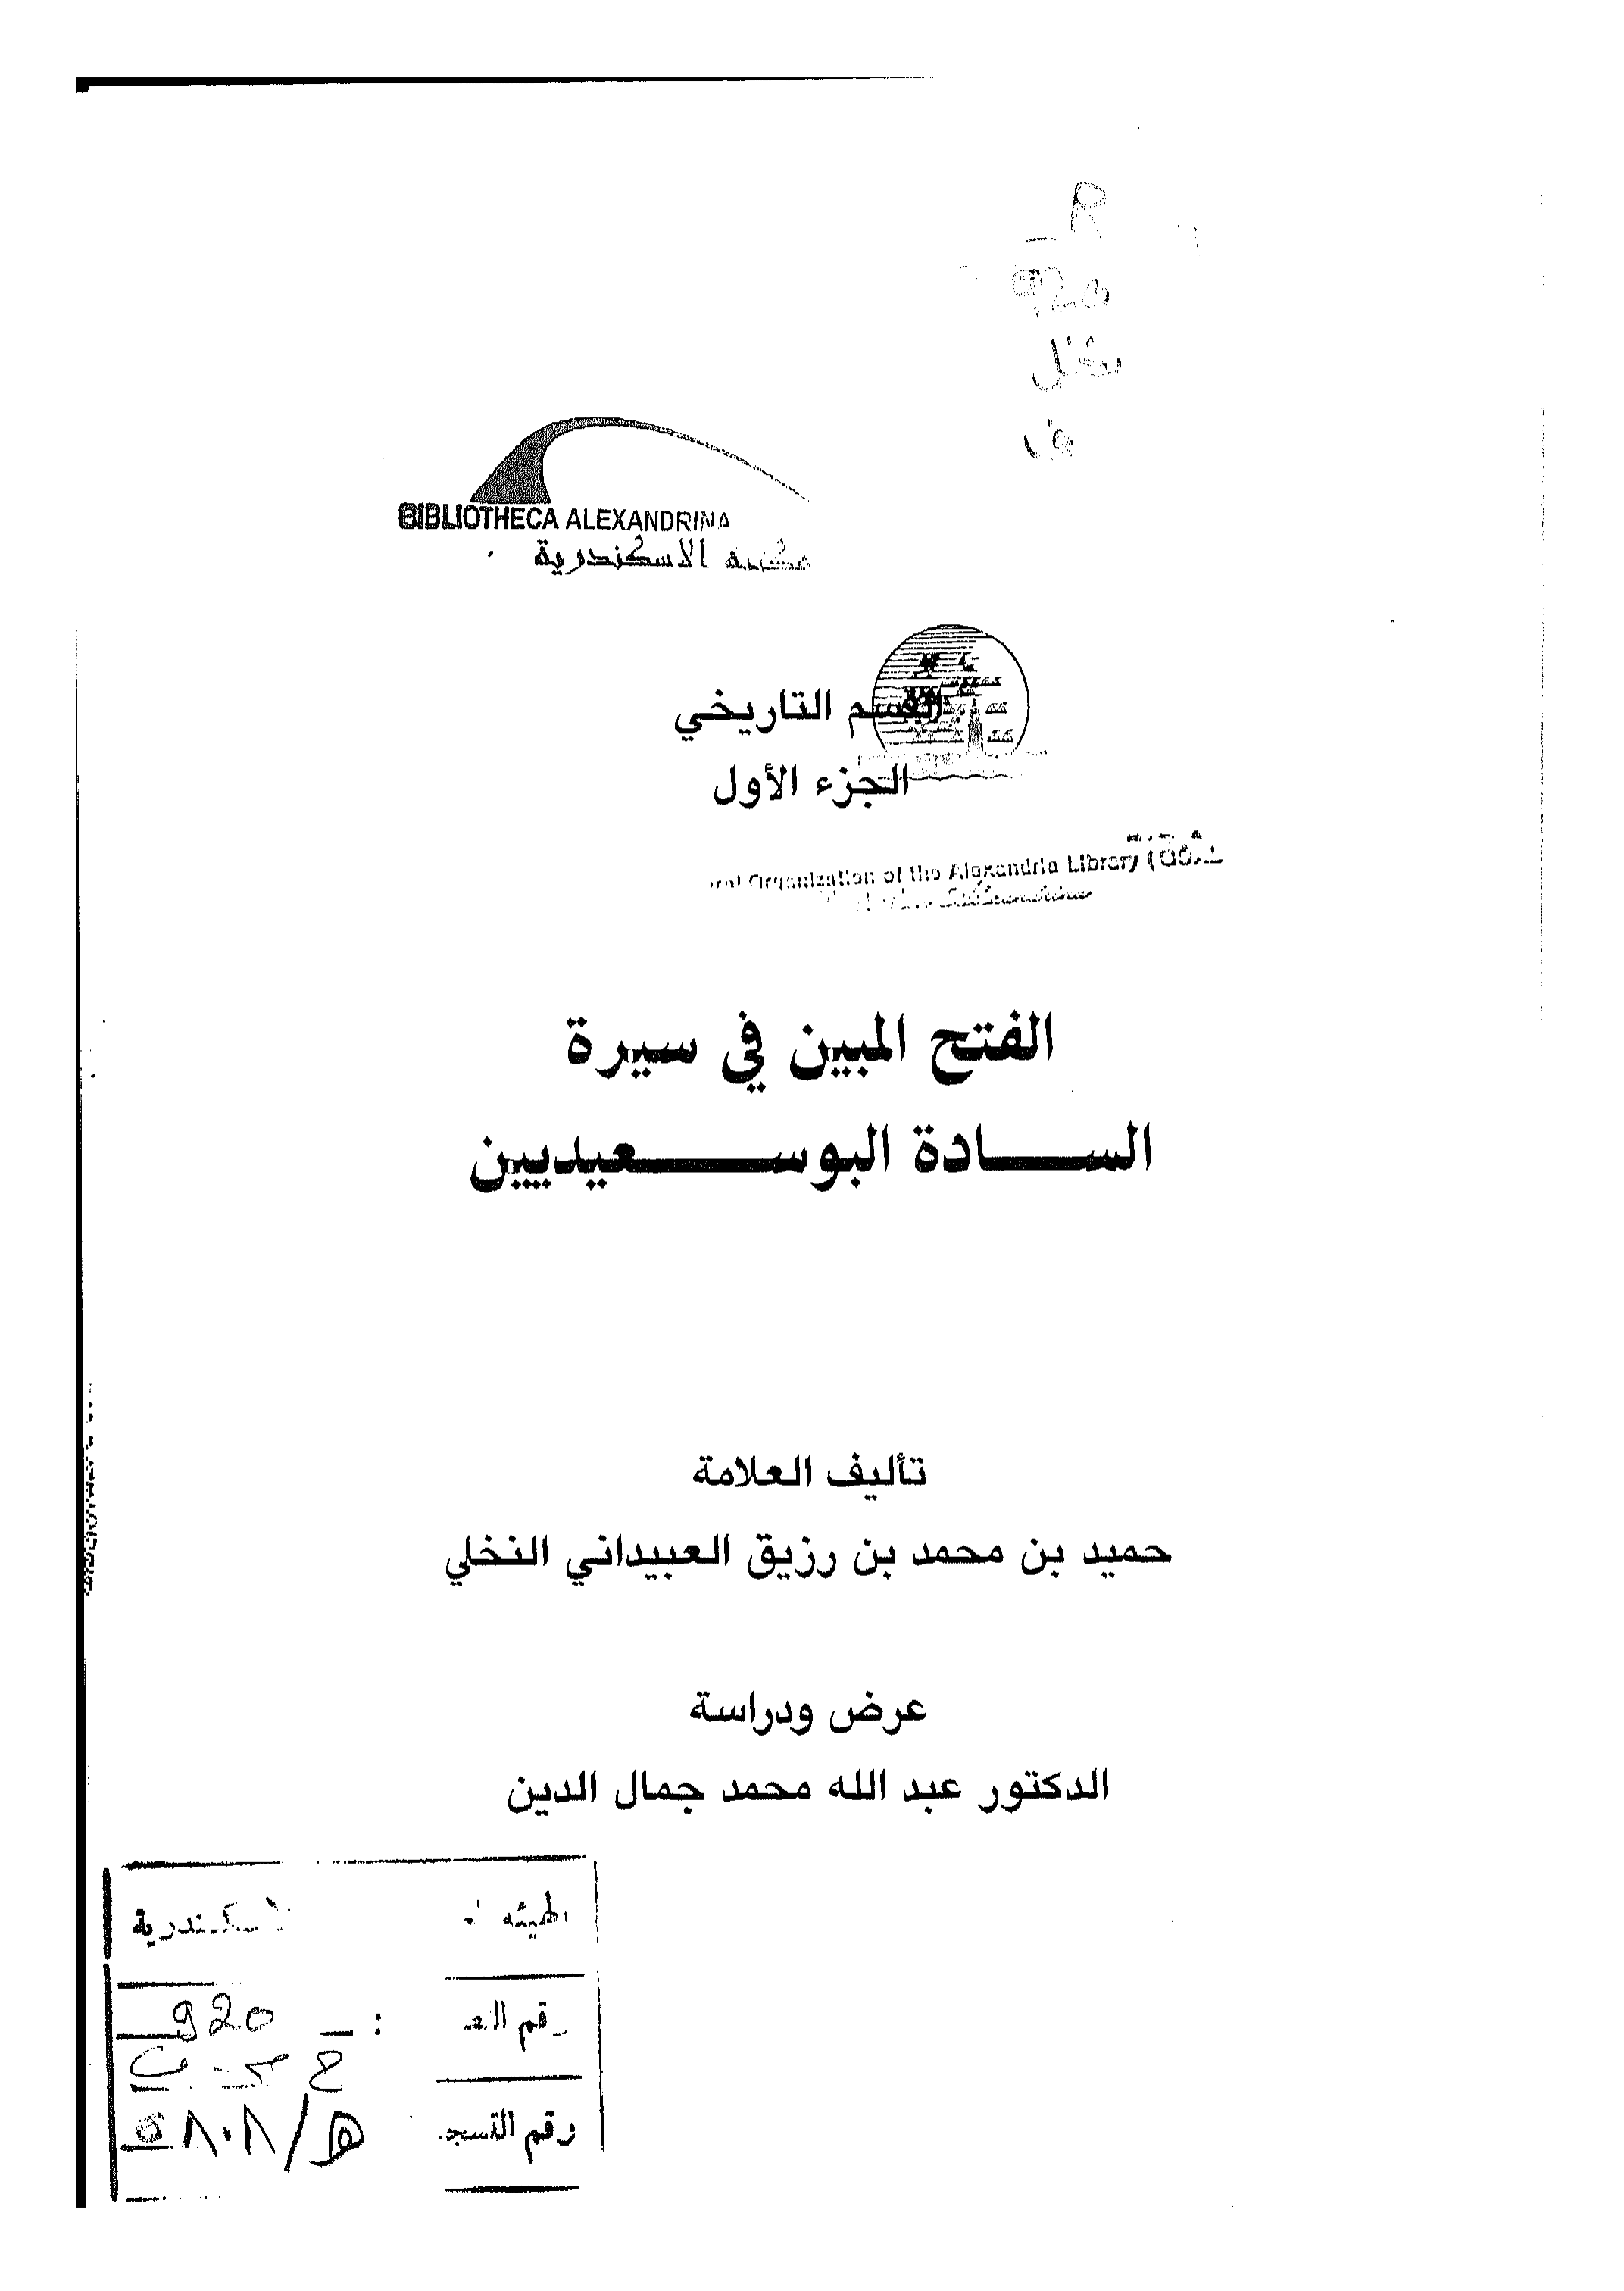 R
920
BIBLIOTHECA ALEXANDRINA
مكتبة الاسكندرية
القسم التاريخي
الجزء الأول
Organization of the Alexandria Library
الفتح المبين في سيرة
الســادة البوســـعيديين
تأليف العلامة
حميد بن محمد بن رزيق العبيداني النخلي
عرض ودراسة
الدكتور عبد الله محمد جمال الدين
الهيئة
رقم : 920
رقم